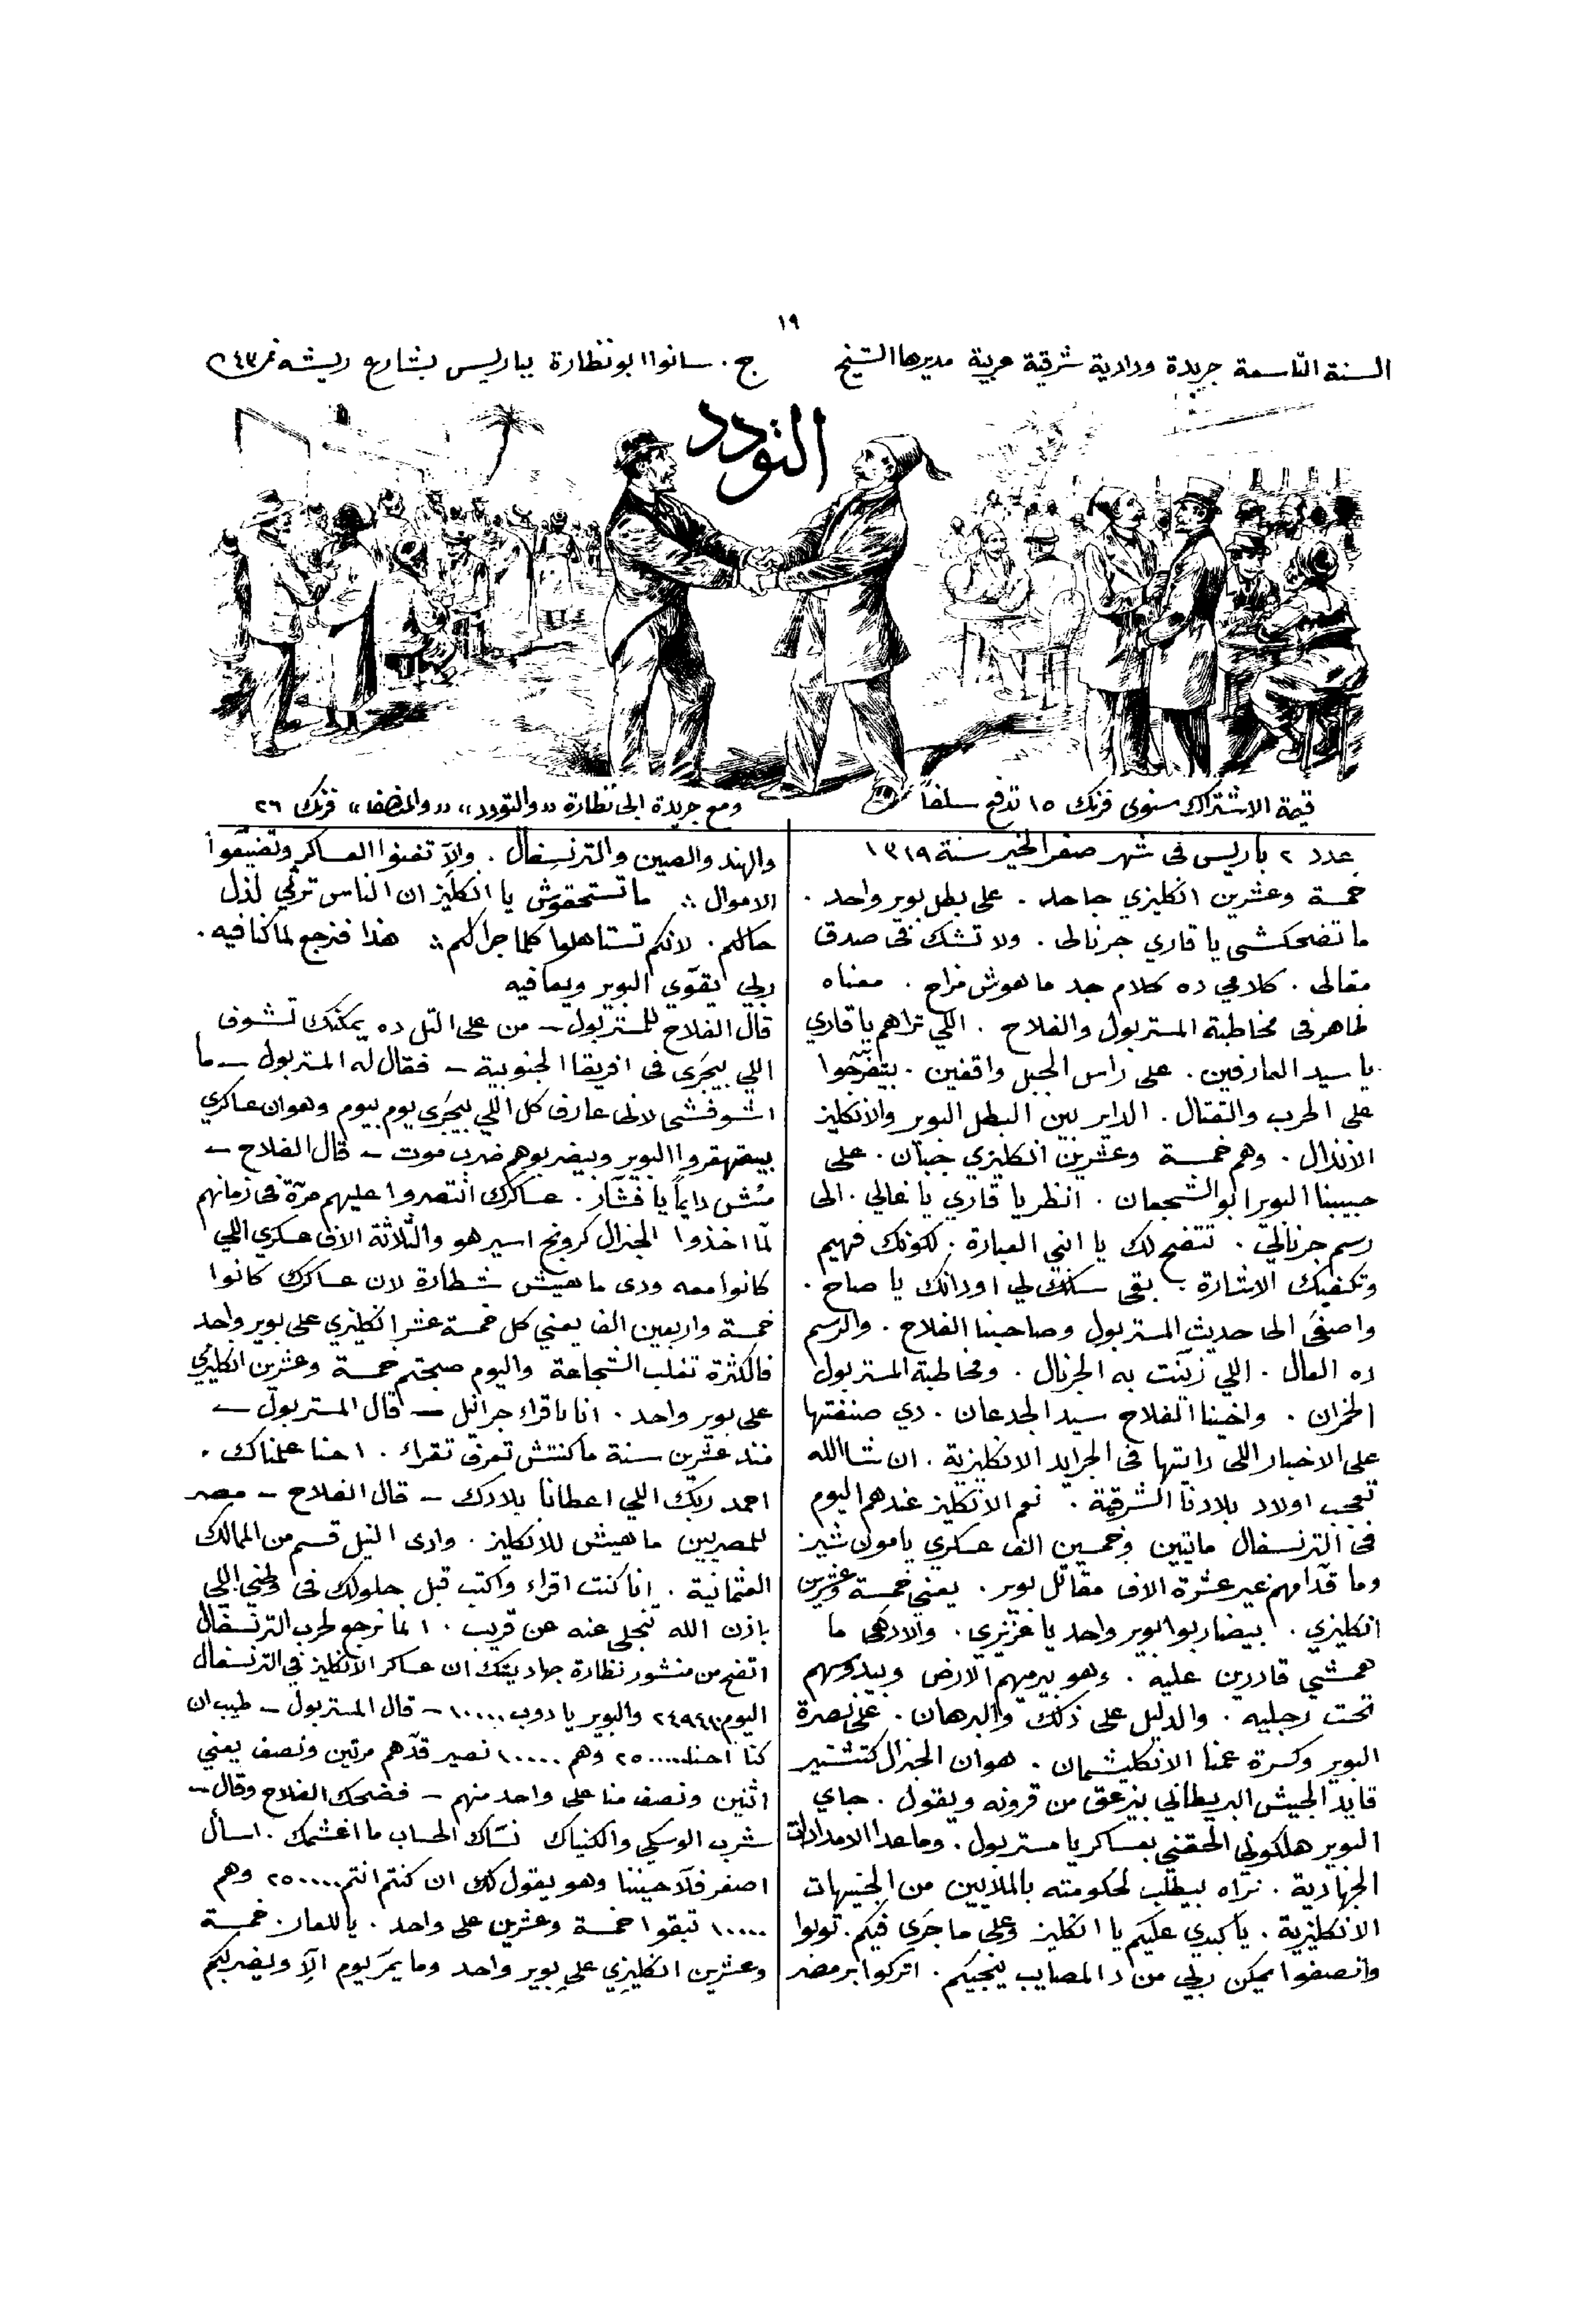 ١٩
السنة التاسعة جريدة ودادية شرقية عربية مديرها الشيخ ج. سانوا ابو نظارة بباريس بشارع ريشه نمر ٤٣
التودد
قيمة الاشتراك سنوى فرنك ١٥ تدفع سلفاً
ومع جريدة ابى نظارة «والتودد» «والمنصف» فرنك ٢٦
عدد ٢ باريس فى شهر صفر الخير سنة ١٣١٩
خمسة وعشرين انكليزي جاحد . على بطل بوير واحد .
ما تضحكشى يا قاري جرنالى . ولا تشك فى صدق
مقالى . كلامي ده كلام جد ما هوش مزاح . معناه
ظاهر فى مخاطبة المستر بول والفلاح . اللي تراهم يا قاري
يا سيد العارفين . على راس الجبل واقفين . بيتفرّجوا
على الحرب والقتال . الداير بين البطل البوير والانكليز
الانذال . وهم خمسة وعشرين انكليزي جبان . على
حبيبنا البوير ابو الشجعان . انظر يا قاري يا غالي . الى
رسم جرنالي . تتضح لك يا انى العبارة . لكونك فهيم
وتكفيك الاشارة . بقى سلك لي اودانك يا صاح .
واصغى الى حديث المستر بول وصاحبنا الفلاح . والرسم
ده العال . اللي زيّنت به الجرنال . ومخاطبة المستر بول
الخمران . واخينا الفلاح سيد الجدعان . دي صنفتها
على الاخبار اللى رايتها فى الجرايد الانكليزية . ان شا الله
تعجب اولاد بلادنا الشرقية . نعم الانكليز عندهم اليوم
فى الترنسفال ماتيين وخمسين الف عسكري يا مون شير
وما قدّامهم غير عشرة الاف مقاتل بوير . يعني خمسة وعشرين
انكليزي . بيضاربوا بوير واحد يا عزيزي . والادهى ما
همشي قادرين عليه . وهو بيرميهم الارض وبيدوسهم
تحت رجليه . والدليل على ذلك والبرهان . على نصرة
البوير وكسرة عمنا الانكليشمان . هو ان الجنرال كتشنير
قايد الجيش البريطاني بيزعق من قرونه ويقول . جاي
البوير هلكوني الحقني بعساكر يا مستر بول . وما عدا الامدادات
الجهادية . نراه بيطلب لحكومته بالملايين من الجنيهات
الانكليزية . يا كبدي عليكم يا انكليز وعلى ما جرى فيكم . توبوا
وانصفوا يمكن ربي من دا المصايب ينجيكم . اتركوا بر مصر
والهند والصين والترنسفال . والّا تفنوا العساكر وتضيّعوا
الاموال ∴ ما تستحقوش يا انكليز ان الناس ترثي لذل
حالكم . لانكم تستاهلوا كلما جرا لكم ∴ هذا فنرجع لما كنا فيه .
ربي يقوّي البوير ويعافيه
قال الفلاح للمستر بول — من على التل ده يمكنك تشوف
اللي بيجرى فى افريقا الجنوبية — فقال له المستر بول — ما
اشوفشى لانى عارف كل اللي بيجرى يوم بيوم وهو ان عساكري
بيقهقروا البوير وبيضربوهم ضرب موت — قال الفلاح —
مش دايماً يا فشّار . عساكرك انتصروا عليهم مرّة فى زمانهم
لمّا اخذوا الجنرال كرونج اسير هو والثلاثة الاف عسكري اللي
كانوا معه ودى ما هيش شطارة لان عساكرك كانوا
خمسة واربعين الف يعني كل خمسة عشر انكليزي على بوير واحد
فالكثرة تغلب الشجاعة واليوم صبحتم خمسة وعشرين انكليزي
على بوير واحد . انا باقراء جرانيل — قال المستر بول —
منذ عشرين سنة ما كنتش تعرف تقراء . احنا علمناك .
احمد ربك اللي اعطانا بلادك — قال الفلاح — مصر
للمصريين ما هيش للانكليز . وادى النيل قسم من الممالك
العثمانية . انا كنت اقراء واكتب قبل حلولك فى وطني اللي
باذن الله تنجلي عنه عن قريب . انما نرجع لحرب الترنسفال
اتضح من منشور نظارة جهاديتك ان عساكر الانكليز في الترنسفال
اليوم ٢٤٩٤١٦ والبوير يا دوب ١٠٠٠٠ — قال المستر بول — طيب ان
كنا احنا ٢٥٠٠٠٠ وهم ١٠٠٠٠٠ نصير قدّهم مرتين ونصف يعني
اثنين ونصف منا على واحد منهم — فضحك الفلاح وقال —
شرب الوسكي والكنياك نسّاك الحساب ما اغشمك . اسأل
اصغر فلّاح يبننا وهو يقول لك ان كنتم انتم ٢٥٠٠٠٠ وهم
١٠٠٠٠ تبقوا خمسة وعشرين على واحد . يا للعار . خمسة
وعشرين انكليزي على بوير واحد وما يمرّ يوم الّا ويضربكم